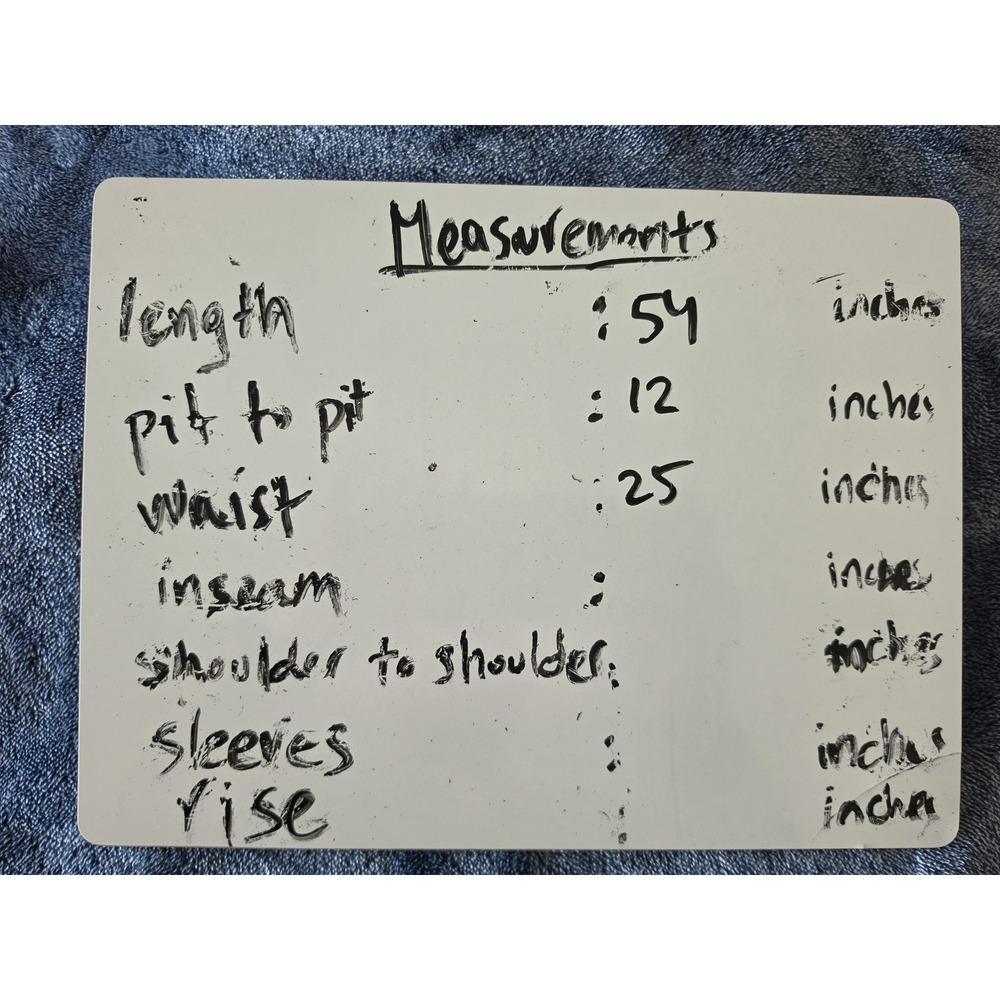 Measurements
length : 54 inches
pit to pit : 12 inches
waist : 25 inches
inseam : inches
shoulder to shoulder : inches
sleeves : inches
rise : inches